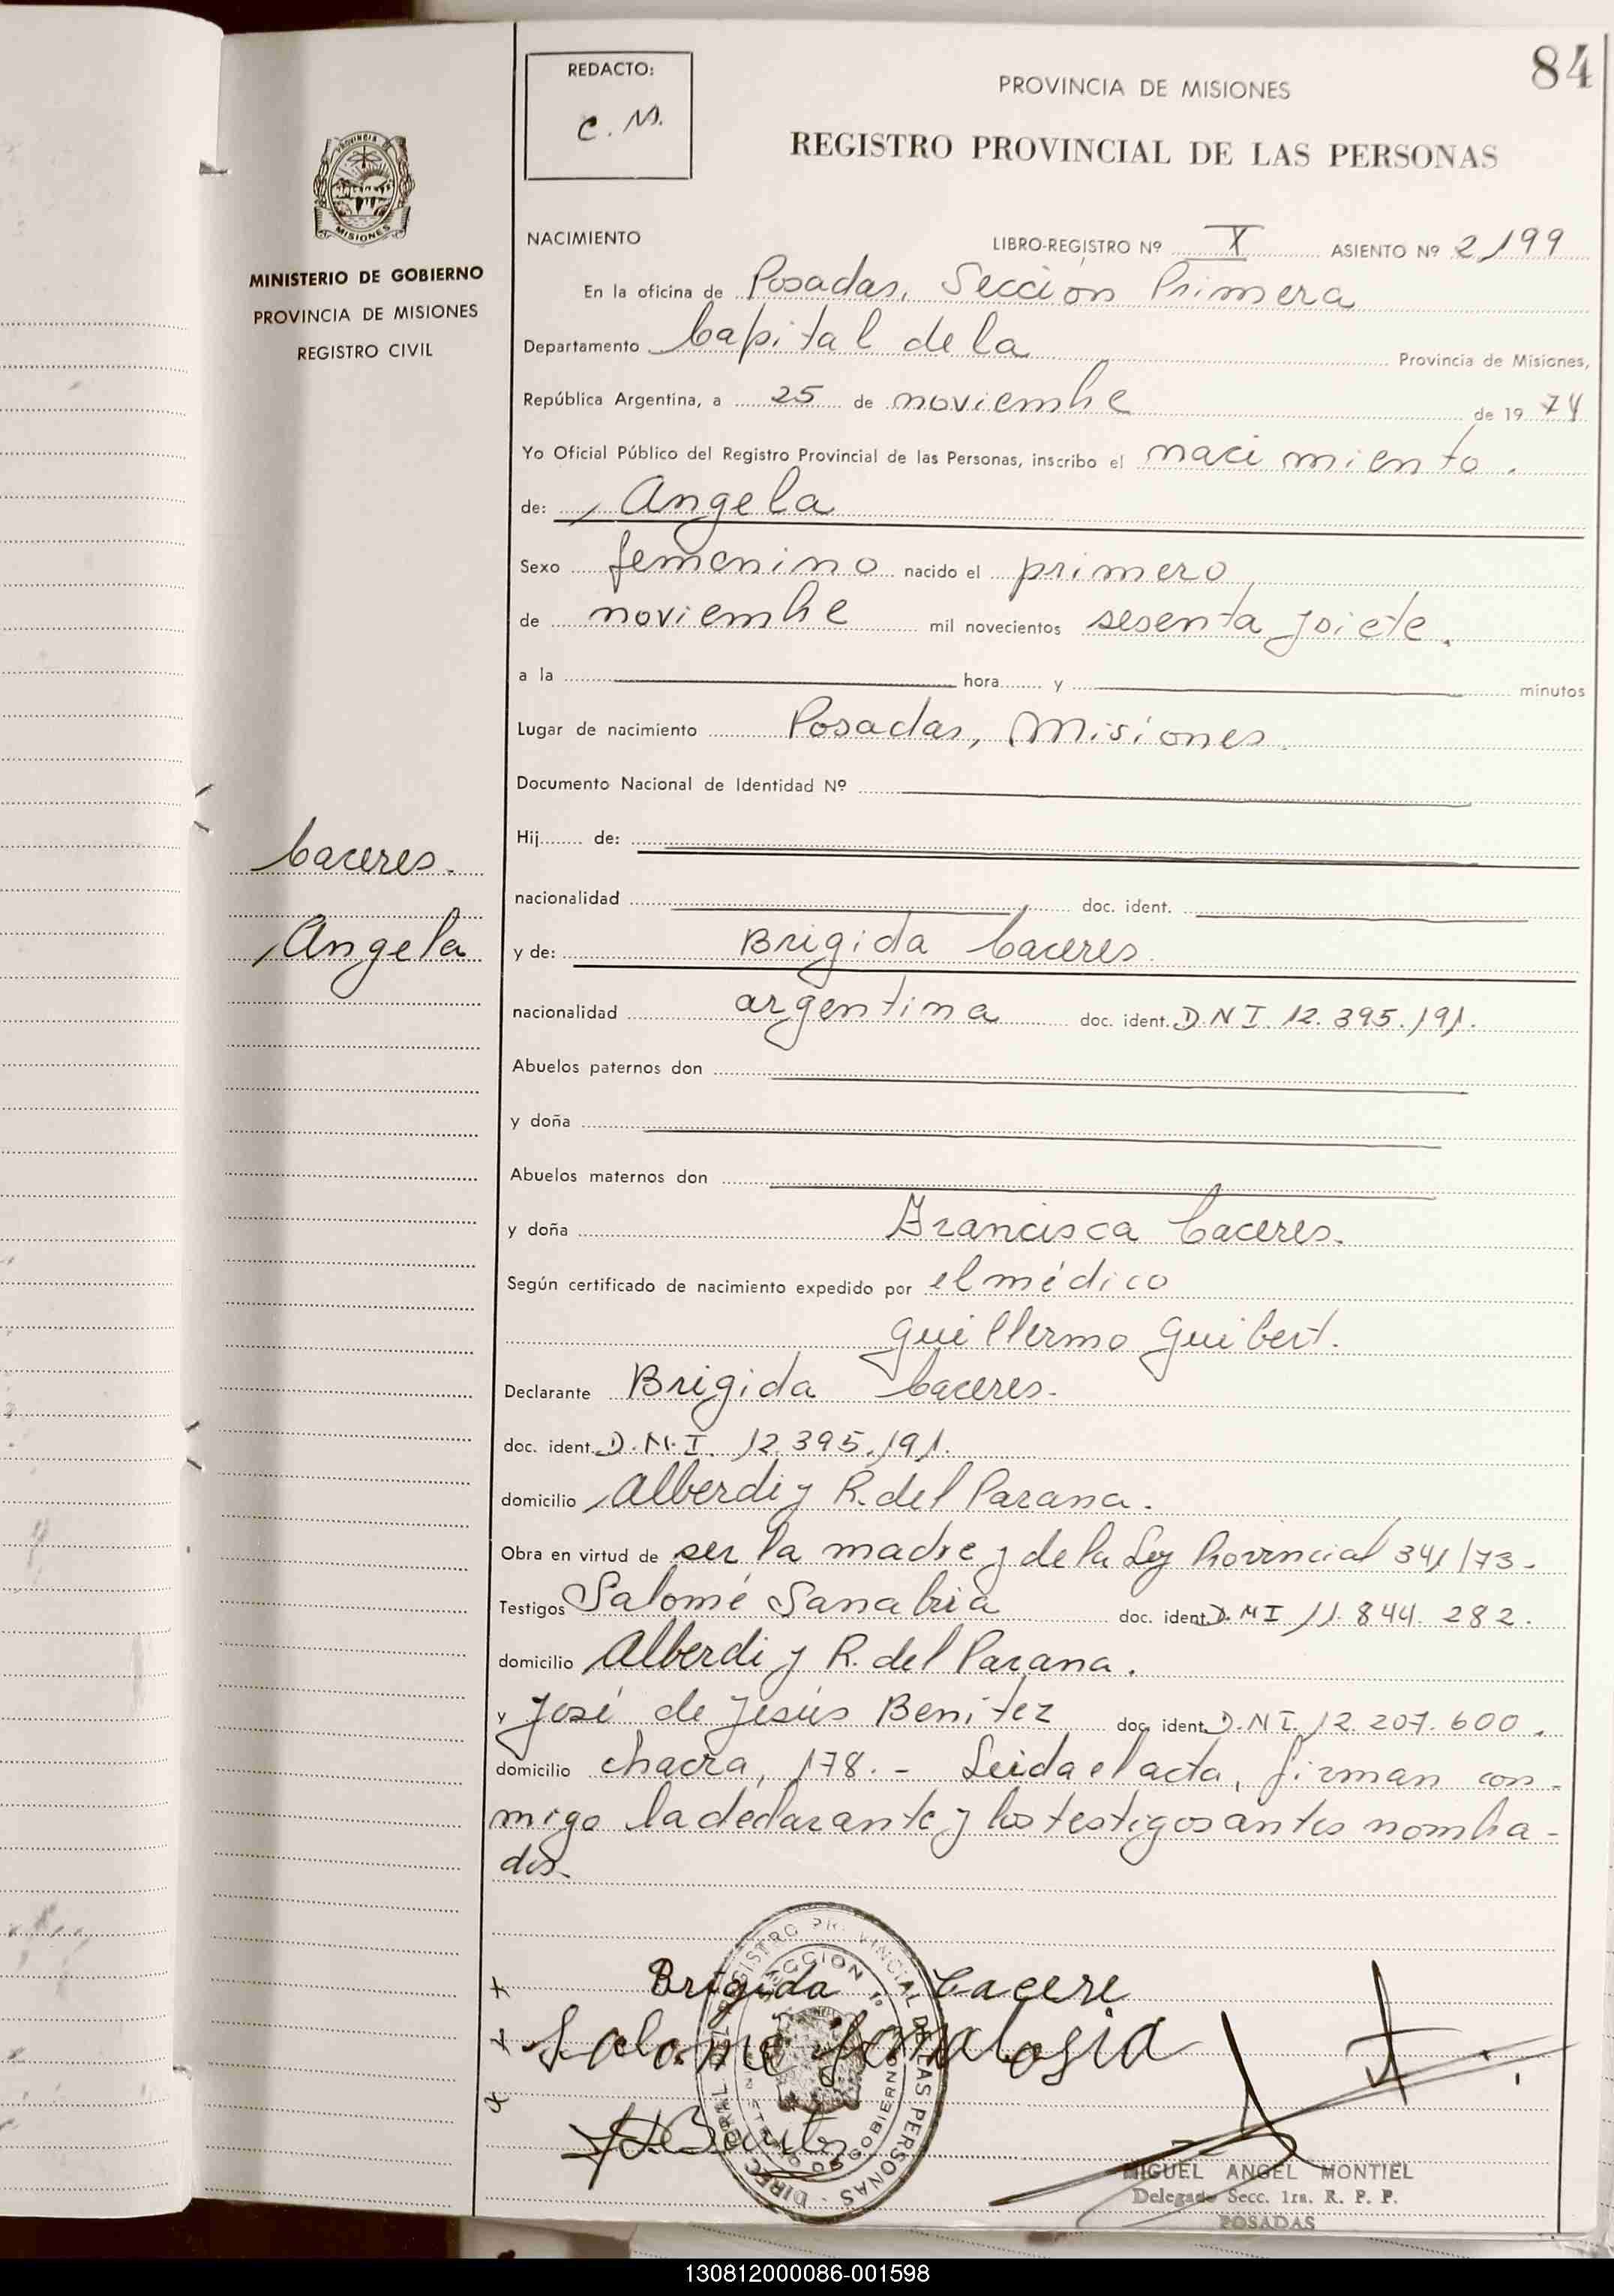 84
REDACTO:
C. M.
PROVINCIA DE MISIONES
REGISTRO PROVINCIAL DE LAS PERSONAS
PROVINCIA DE
MISIONES
MINISTERIO DE GOBIERNO
PROVINCIA DE MISIONES
REGISTRO CIVIL
NACIMIENTO LIBRO-REGISTRO Nº X ASIENTO Nº 2199
En la oficina de Posadas, Seccion Primera
Departamento Capital de la Provincia de Misiones,
República Argentina, a 25 de noviembre de 19 74
Yo Oficial Público del Registro Provincial de las Personas, inscribo el nacimiento.
de: Angela
Sexo femenino nacido el primero
de noviembre mil novecientos sesenta y siete.
a la hora y minutos
Lugar de nacimiento Posadas, Misiones.
Documento Nacional de Identidad Nº
Hij de:
Caceres.
nacionalidad doc. ident.
Angela
y de: Brigida Caceres.
nacionalidad argentina doc. ident. D.N.I. 12.395.191.
Abuelos paternos don
y doña
Abuelos maternos don
y doña Francisca Caceres.
Según certificado de nacimiento expedido por el médico
Guillermo Guibert.
Declarante Brigida Caceres.
doc. ident. D.N.I. 12.395.191.
domicilio Alberdi y R. del Parana.
Obra en virtud de ser la madre y de la Ley Provincial 341/73-
Testigos Salomé Sanabria doc. ident. D.N.I 11.844.282.
domicilio Alberdi y R. del Parana.
y José de Jesús Benitez doc. ident. D.N.I. 12.207.600.
domicilio chacra, 178. - Leida el acta, firman con-
migo la declarante y los testigos antes nombra-
dos.
Brigida Cacere
Salome
MIGUEL ANGEL MONTIEL
Delegado Secc. 1ra. R. P. P.
POSADAS
130812000086-001598